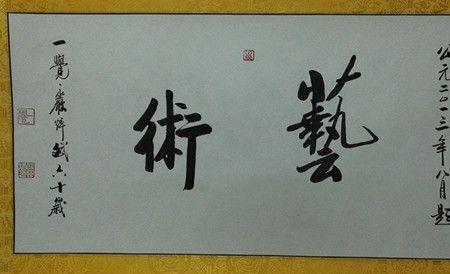 公元二〇一三年八月題
藝術
一覺 嚴 六十歲